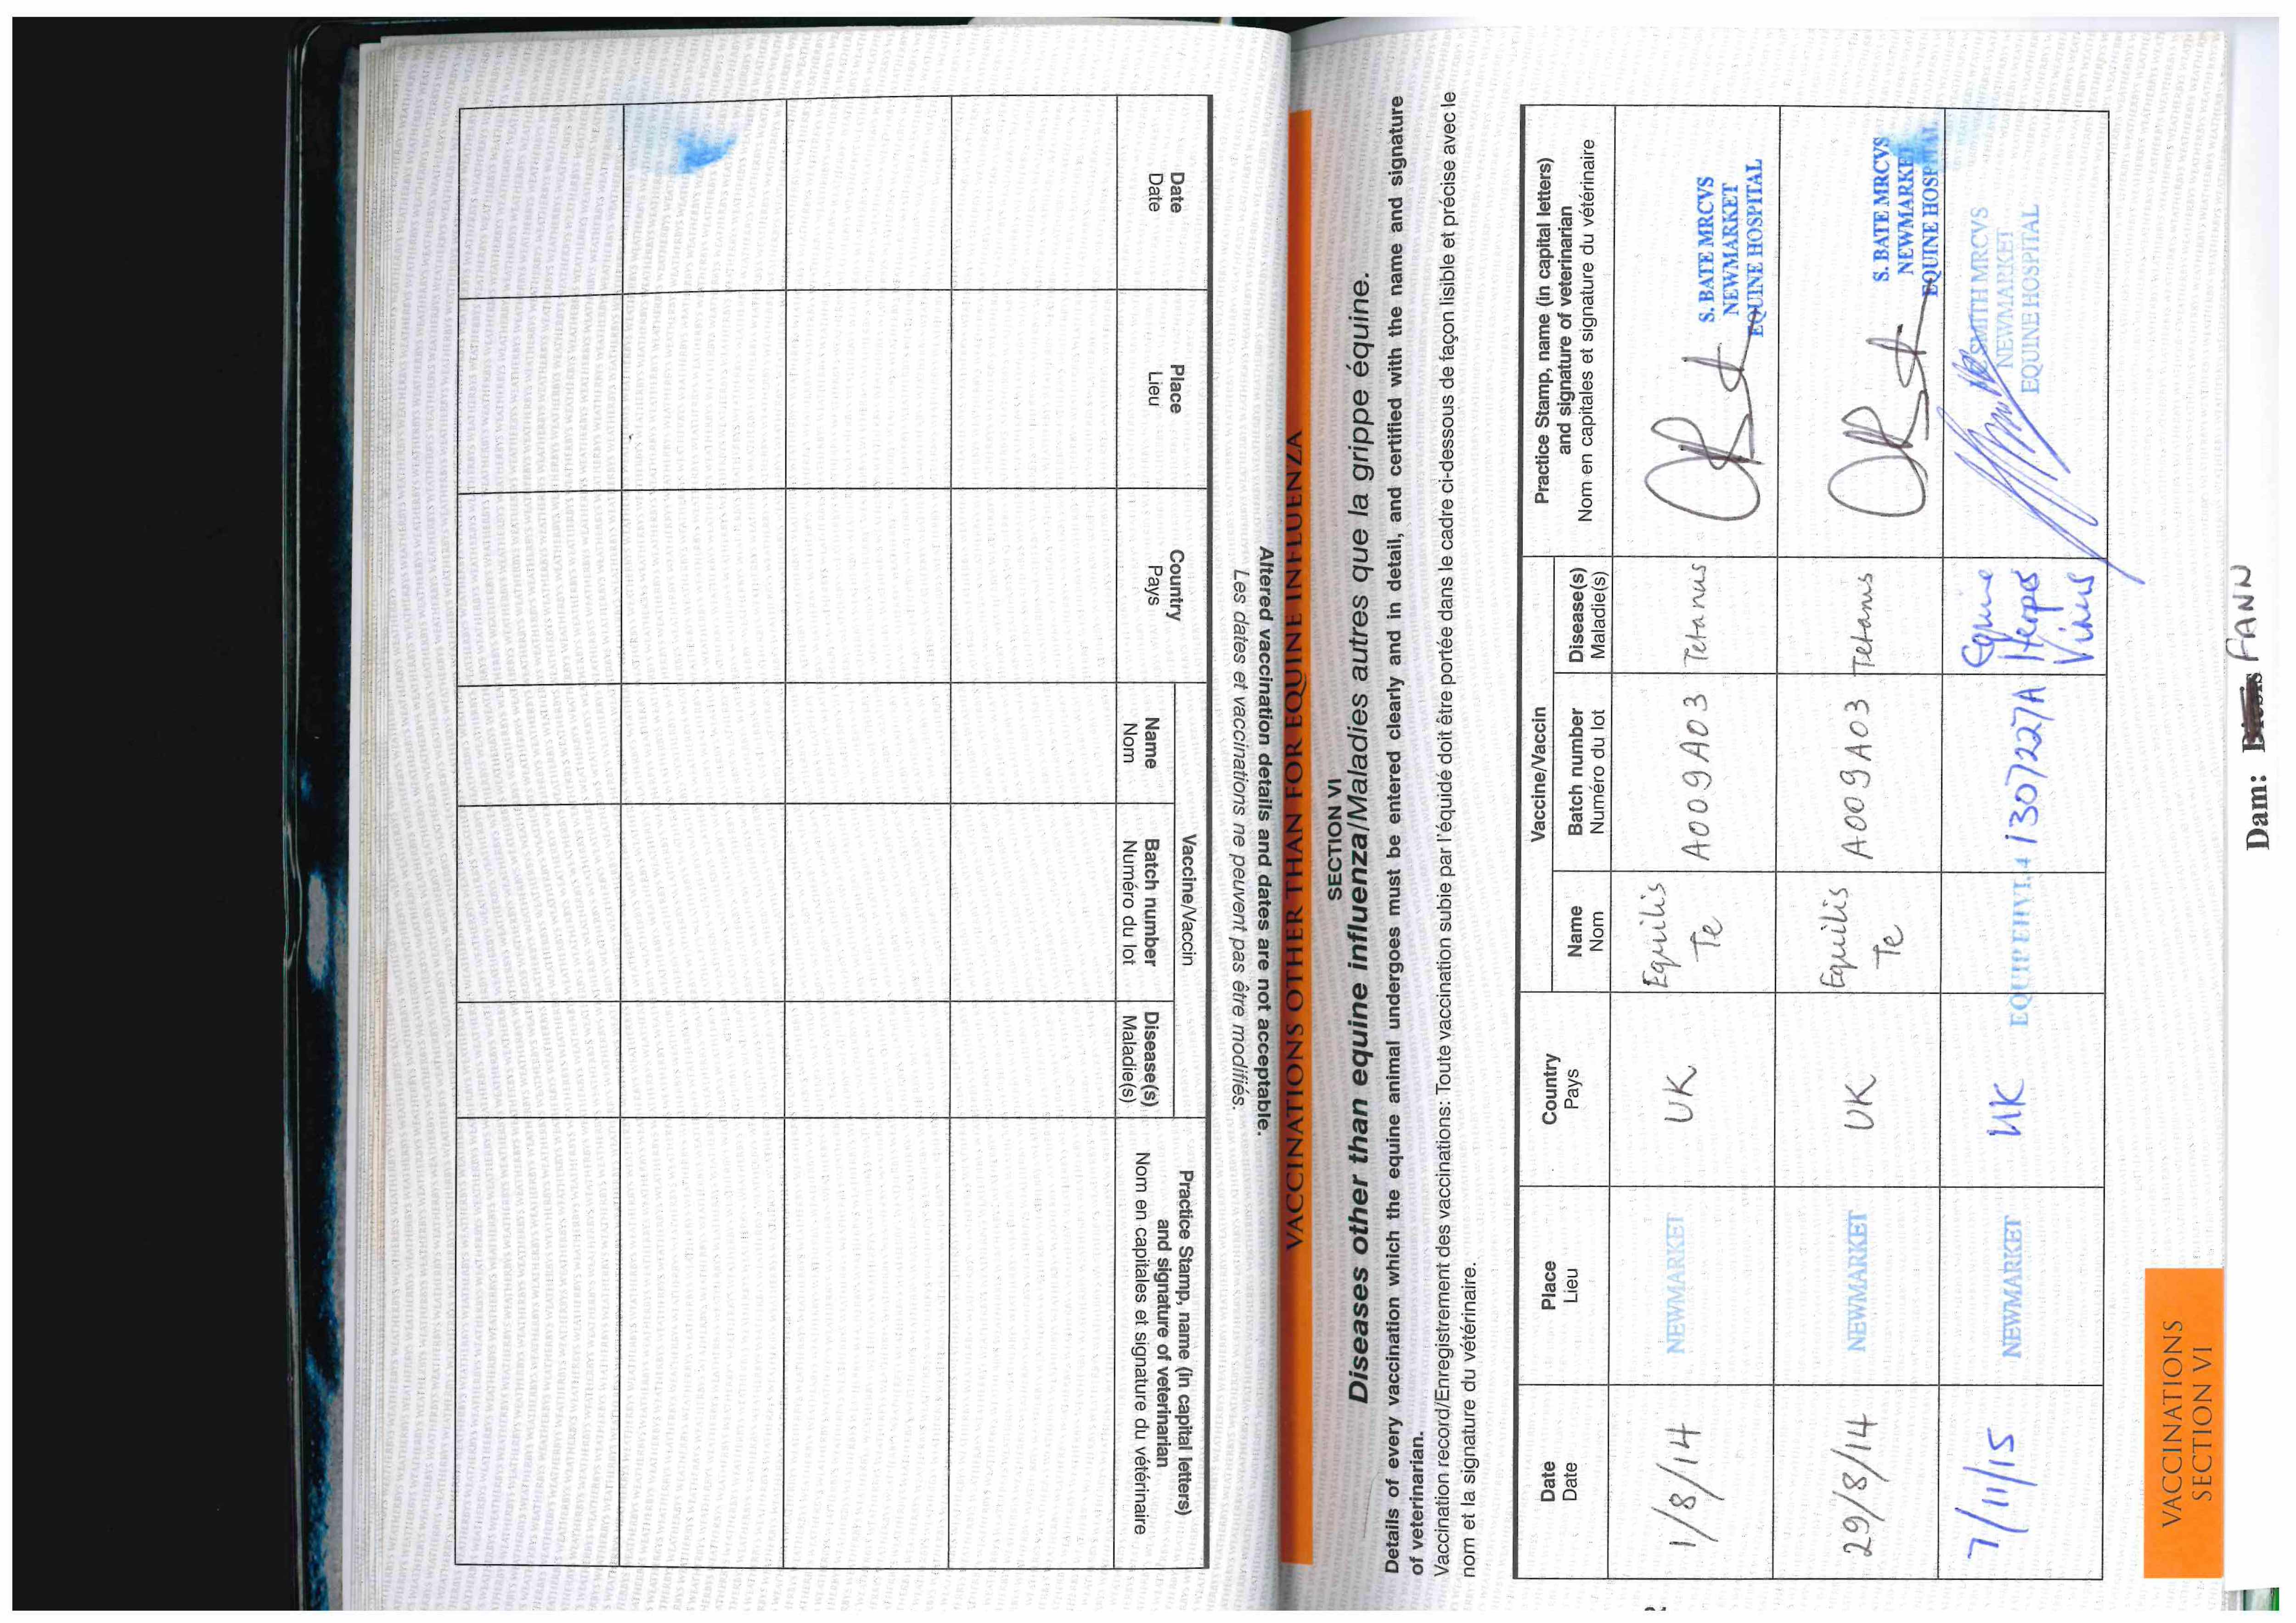 VACCINATIONS OTHER THAN FOR EQUINE INFLUENZA
SECTION VI
Diseases other than equine influenza/Maladies autres que la grippe équine.
Details of every vaccination which the equine animal undergoes must be entered clearly and in detail, and certified with the name and signature
of veterinarian.
Vaccination record/Enregistrement des vaccinations: Toute vaccination subie par l'équidé doit être portée dans le cadre ci-dessous de façon lisible et précise avec le
nom et la signature du vétérinaire.
Date
Date
Place
Lieu
Country
Pays
Vaccine/Vaccin
Name
Nom
Batch number
Numéro du lot
Disease(s)
Maladie(s)
Practice Stamp, name (in capital letters)
and signature of veterinarian
Nom en capitales et signature du vétérinaire
1/8/14
NEWMARKET
UK
Equilis
Te
A009A03
Tetanus
S. BATE MRCVS
NEWMARKET
EQUINE HOSPITAL
29/8/14
NEWMARKET
UK
Equilis
Te
A009A03
Tetanus
S. BATE MRCVS
NEWMARKET
EQUINE HOSPITAL
7/11/15
NEWMARKET
UK
EQUIP EHV1,4
1307227A
Equine
Herpes
Virus
SMITH MRCVS
NEWMARKET
EQUINE HOSPITAL
VACCINATIONS
SECTION VI
Dam: FANN
Altered vaccination details and dates are not acceptable.
Les dates et vaccinations ne peuvent pas être modifiés.
Date
Date
Place
Lieu
Country
Pays
Vaccine/Vaccin
Name
Nom
Batch number
Numéro du lot
Disease(s)
Maladie(s)
Practice Stamp, name (in capital letters)
and signature of veterinarian
Nom en capitales et signature du vétérinaire